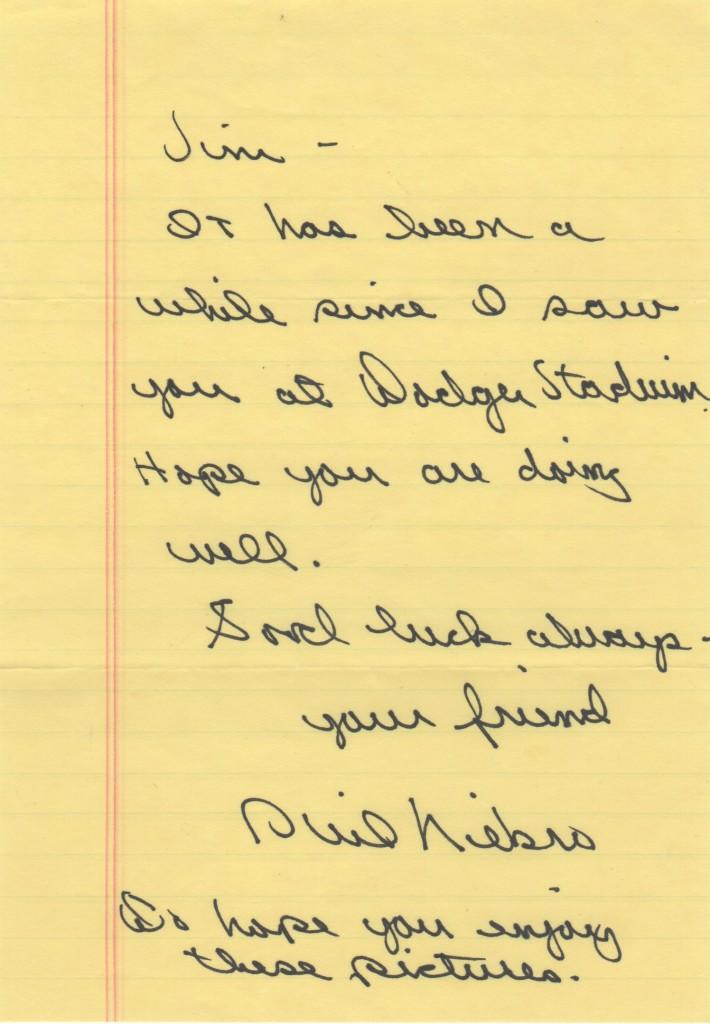 Jim -
It has been a
while since I saw
you at Dodger Stadium.
Hope you are doing
well.
Good luck always -
your friend
Phil Niekro
Do hope you enjoy
these pictures.